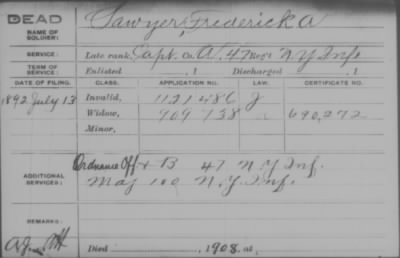 DEAD
NAME OF SOLDIER: Sawyer, Frederick A
SERVICE: Late rank, Capt. Co. A, 47 Reg't N Y Inf.
TERM OF SERVICE: Enlisted , 1 Discharged , 1
DATE OF FILING. CLASS. APPLICATION NO. LAW. CERTIFICATE NO.
1892 July 13 Invalid, 1121486 J
Widow, 909738 690,272
Minor,
ADDITIONAL SERVICES: Ordnance Off + B 47 N.Y. Inf.
Maj 100 N.Y. Inf.
REMARKS:
Died , 1908, at